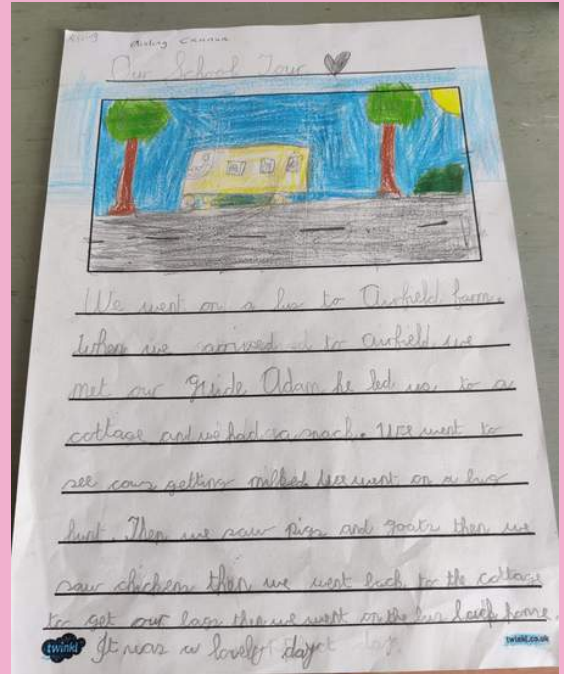 Aisling Cannon
Our School Tour
We went on a bus to Airfield farm.
When we arrived to airfield we
met our guide Adam he led us to a
cottage and we had a snack. We went to
see cows getting milked we went on a bug
hunt. Then we saw pigs and goats then we
saw chickens then we went back to the cottage
to get our bags then we went on the bus back home.
It was a lovely day
twinkl
twinkl.co.uk